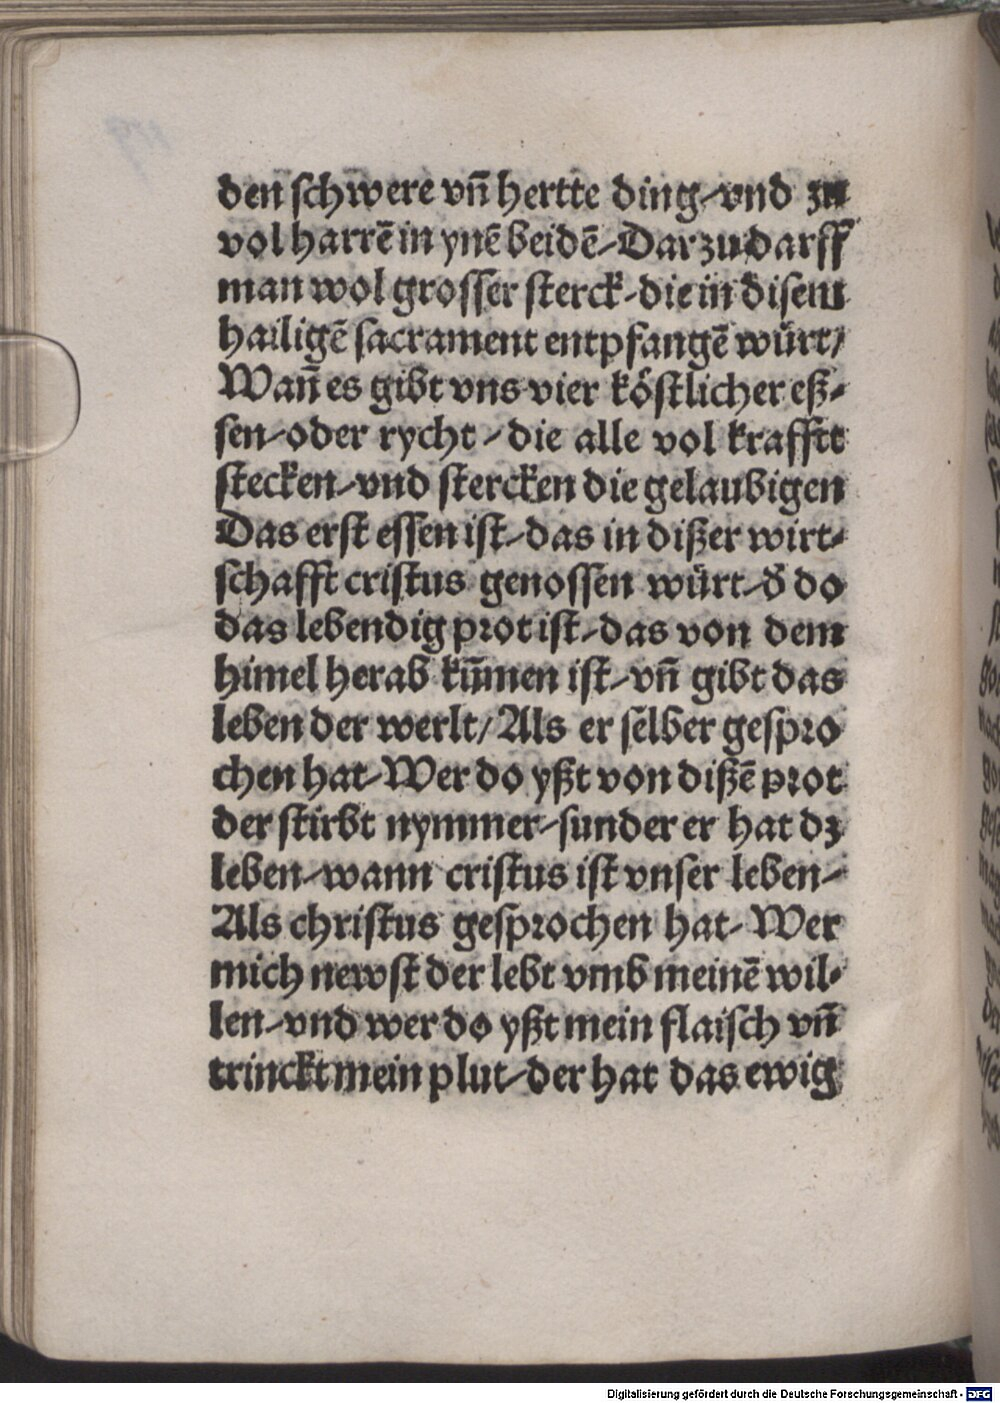 den ſchwere vn̄ hertte ding⸗vnd zu
vol harrē in ynē beidē⸗Dar zu darff
man wol groſſer ſterck⸗die in diſem
hailigē ſacrament entpfangē würt/
Wan̄ es gibt vns vier köſtlicher eß⸗
ſen⸗oder rycht⸗die alle vol krafftt
ſtecken⸗vnd ſtercken die gelaubigen
Das erſt eſſen iſt⸗das in dißer wirt⸗
ſchafft criſtus genoſſen würt⸗d̄ do
das lebendig prot iſt⸗das von dem
himel herab kūmen iſt⸗vn̄ gibt das
leben der werlt/Als er ſelber geſpro
chen hat⸗Wer do yßt von dißē prot
der ſtirbt nymmer⸗ſunder er hat dz
leben⸗wann criſtus iſt vnſer leben⸗
Als chriſtus geſprochen hat⸗Wer
mich newſt der lebt vmb meinē wil⸗
len⸗vnd wer do yßt mein flaiſch vn̄
trinckt mein plut⸗der hat das ewig
Digitalisierung gefördert durch die Deutsche Forschungsgemeinschaft - DFG